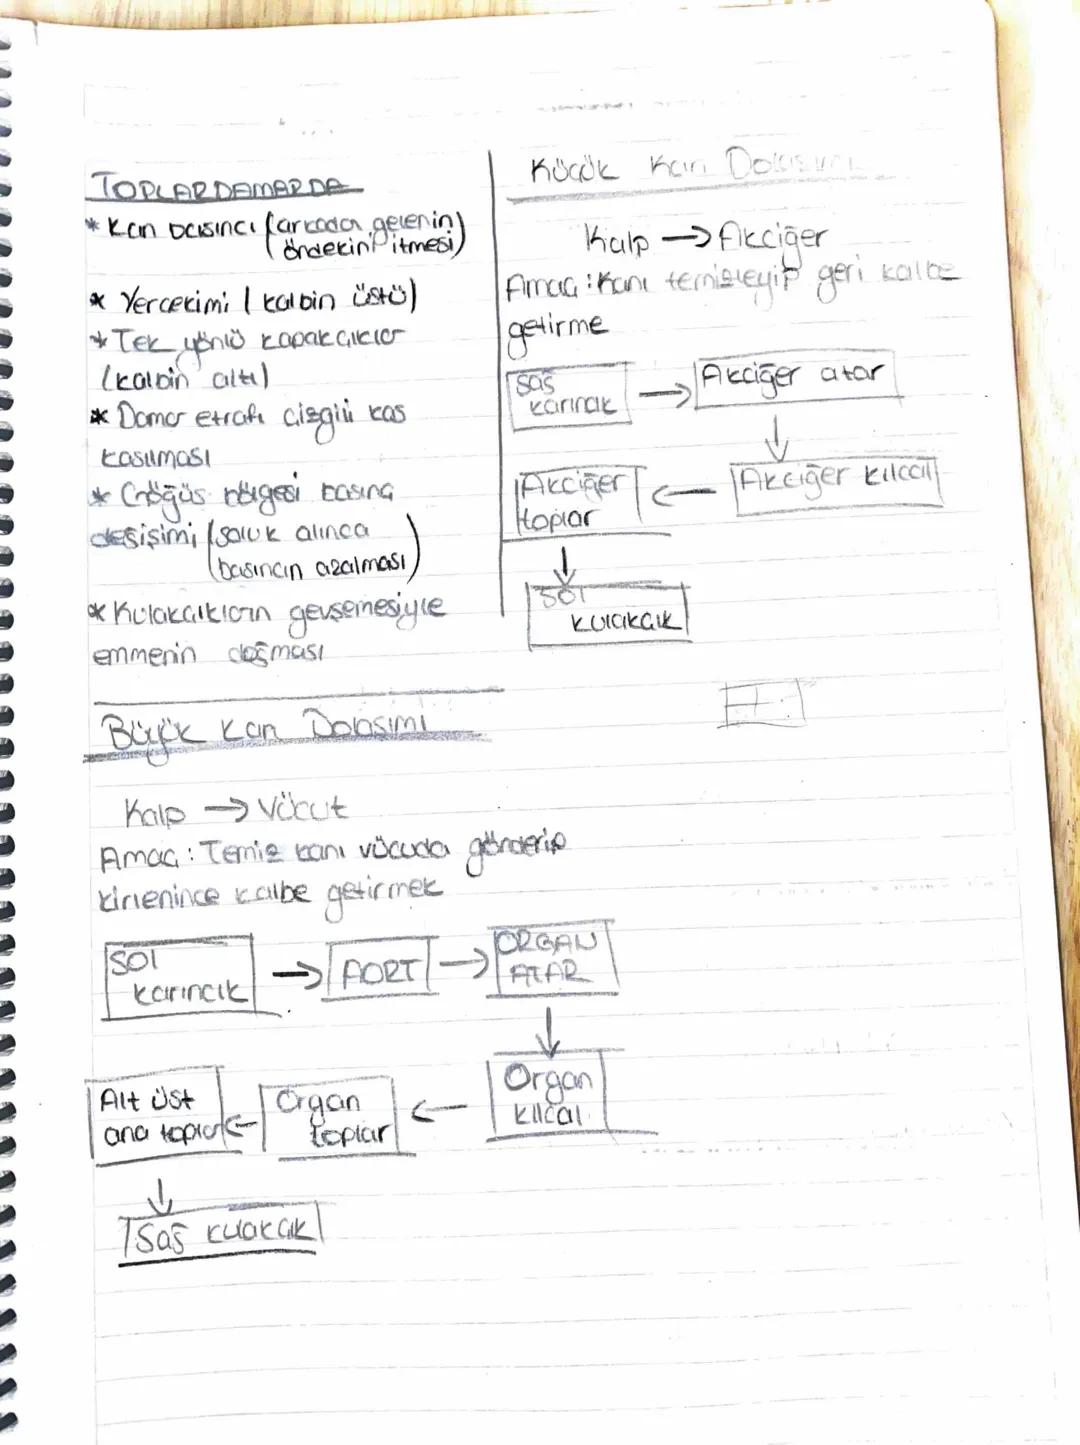 TOPLARDAMARDA
* Kan basıncı (arkadan gelenin
öndekini itmesi)
* Yerçekimi (kalbin üstü)
* Tek yönlü kapakçıklar
(kalbin altı)
* Damar etrafı çizgili kas
kasılması
* Göğüs bölgesi basınç
değişimi (soluk alınca
basıncın azalması)
* Kulakçıkların gevşemesiyle
emmenin doğması
Küçük Kan Dolaşımı
Kalp → Akciğer
Amaç: Kanı temizleyip geri kalbe
getirme
Sağ
karıncık
→ Akciğer atar
↓
Akciğer kılcal
←
Akciğer
toplar
↓
Sol
kulakçık
Büyük Kan Dolaşımı
Kalp → Vücut
Amaç: Temiz kanı vücuda gönderip
kirlenince kalbe getirmek
Sol
karıncık
→ AORT →
ORGAN
ATAR
↓
Organ
kılcal
←
Organ
toplar
←
Alt üst
ana toplar
↓
Sağ kulakçık